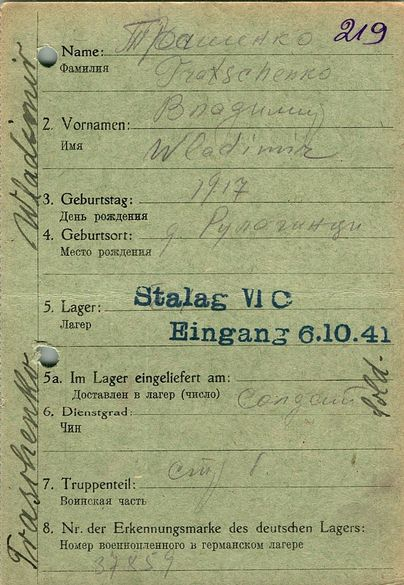 219
Name: Трашенко
Фамилия Tratschenko
Владимир
2. Vornamen:
Имя Wladimir
3. Geburtstag: 1917
День рождения
4. Geburtsort: д.
Место рождения
5. Lager: Stalag VI C
Лагер Eingang 6.10.41
5a. Im Lager eingeliefert am:
Доставлен в лагер (число)
6. Dienstgrad: Солдат Sold.
Чин
7. Truppenteil:
Воинская часть
8. Nr. der Erkennungsmarke des deutschen Lagers:
Номер военнопленного в германском лагере
37859
Wladimir
Traschenko